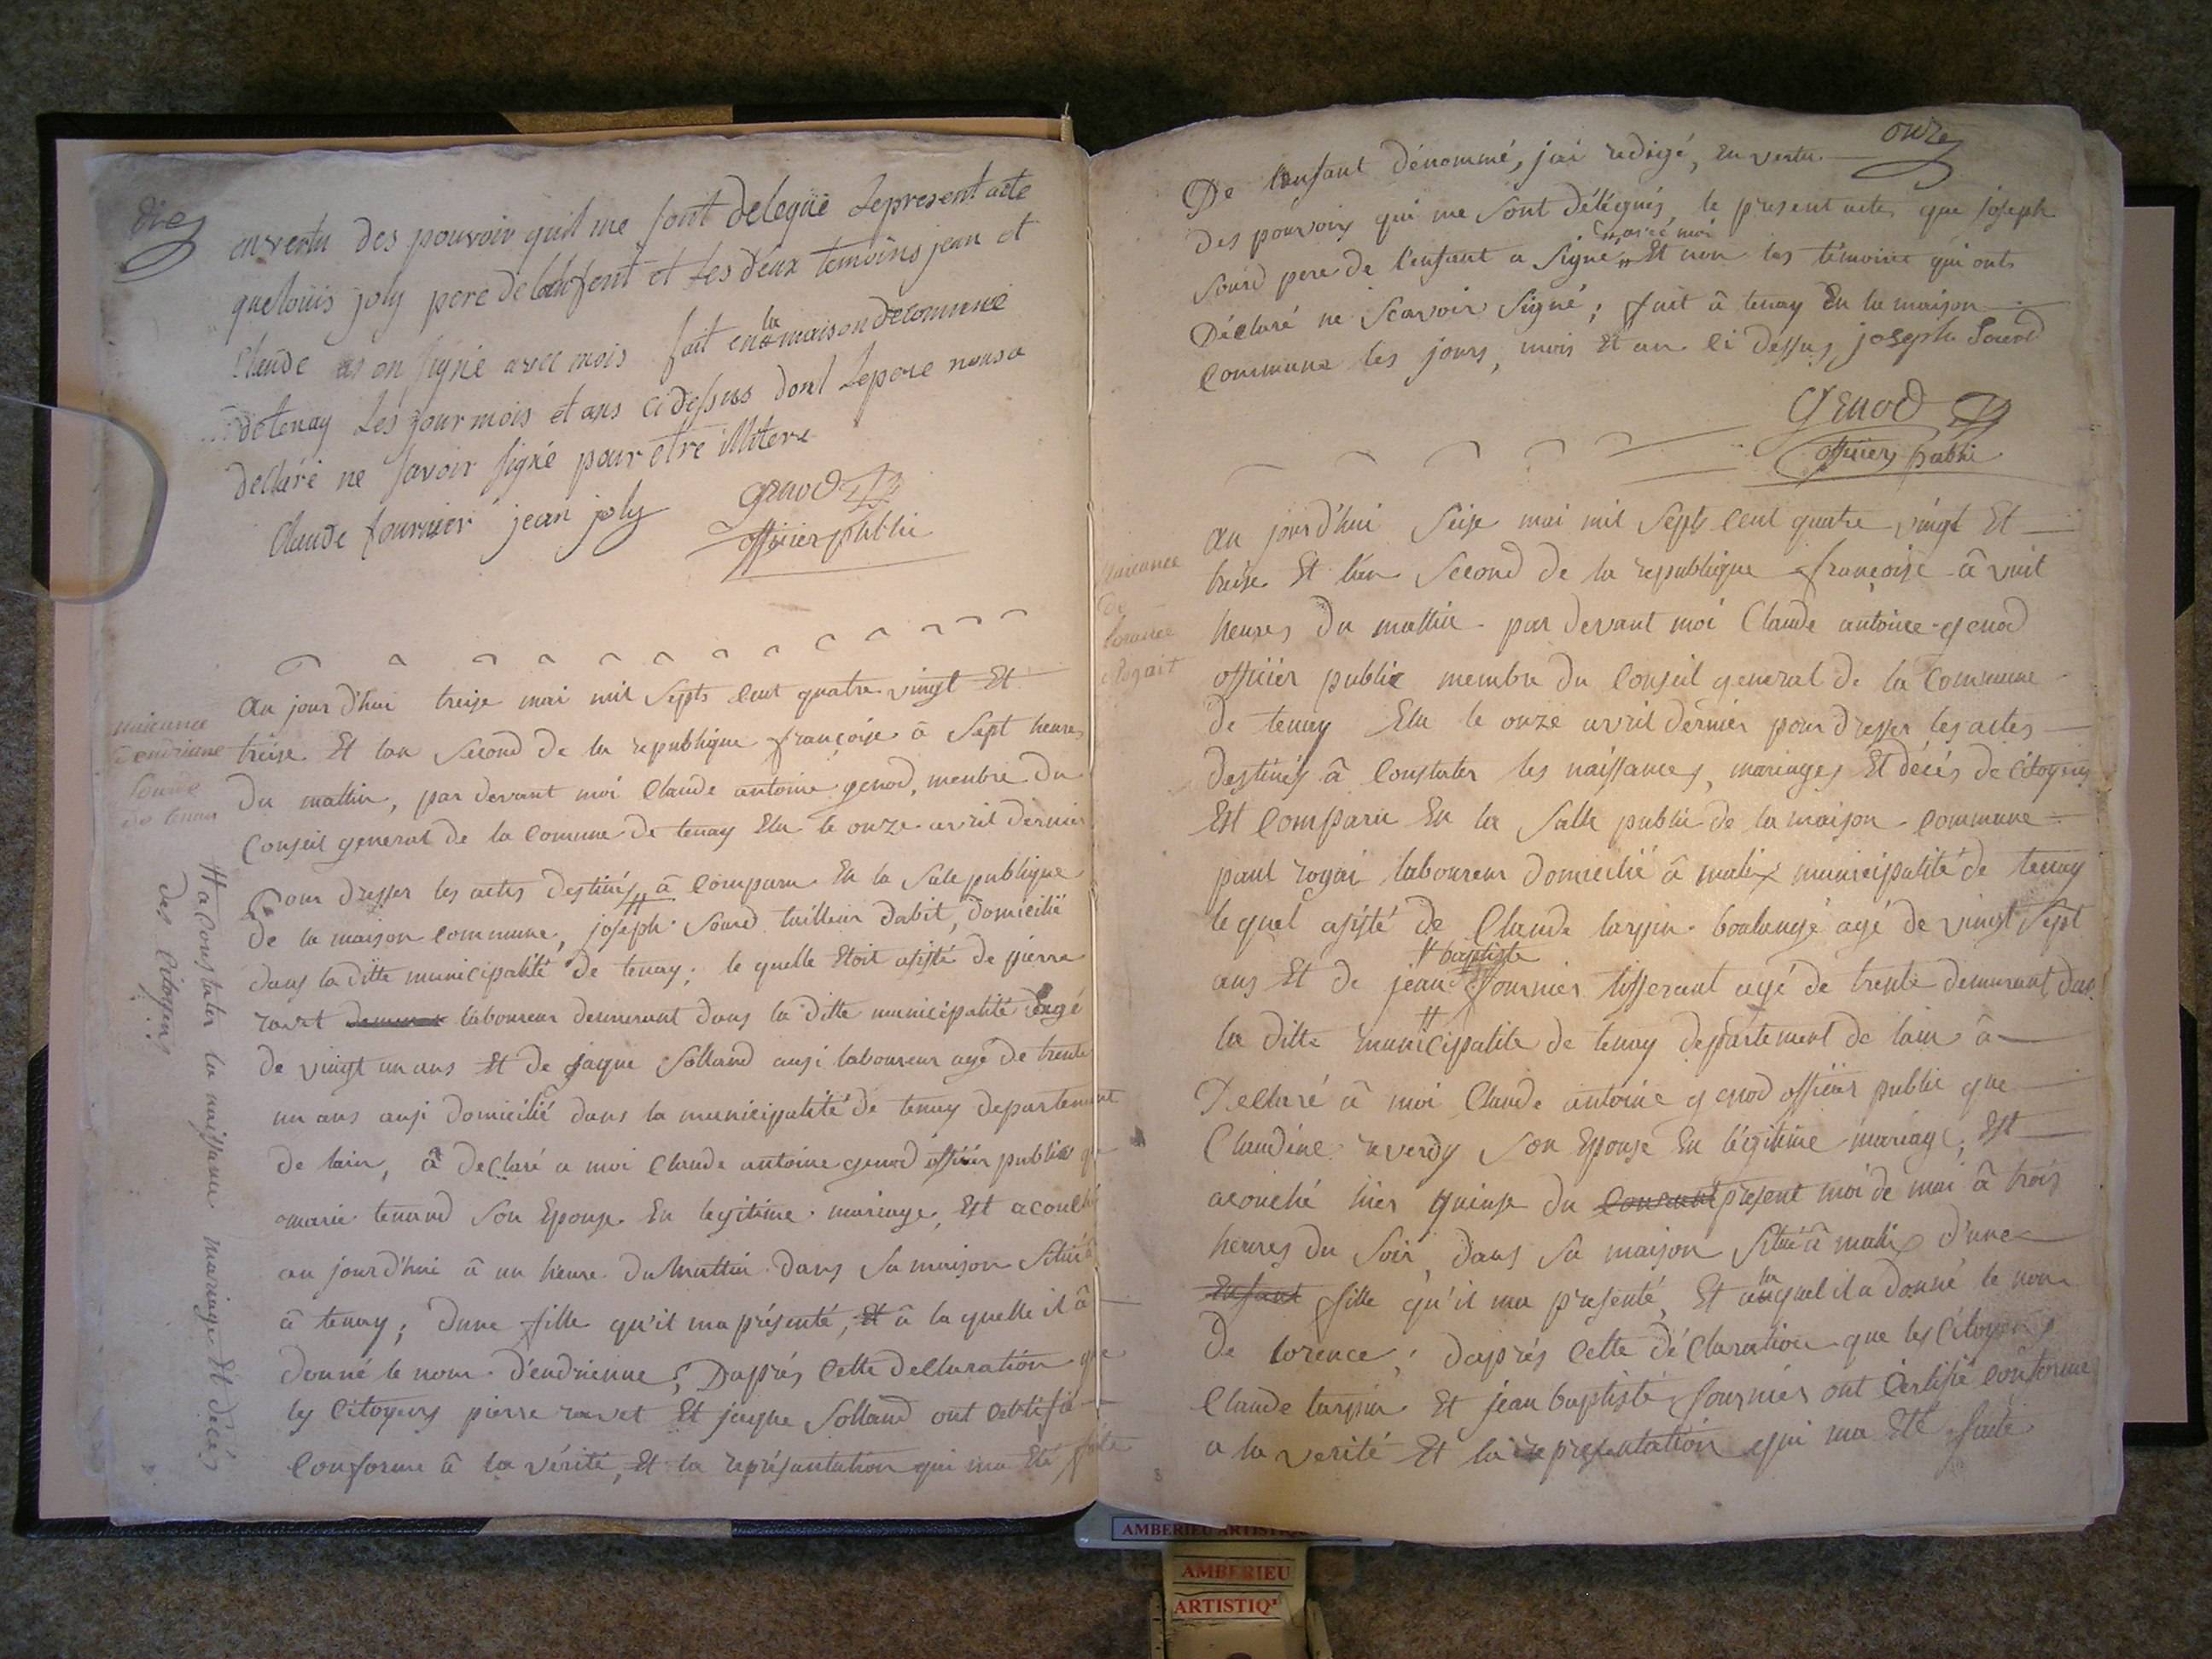 dix
en vertu des pouvoir quil me sont delegué Le present acte
que loüis joly pere de lenfent et Les deux temoins jean et
Claude on signé avec mois fait en la maison de comune
de tenay Les jour mois et ans ci dessus dont Le pere nous a
declaré ne savoir signé pour etre illitere
Claude fournier jean joly genod
officier public
naicance
d'endriene
Sourd
de tenay
au jourd'hui treize mai mil Septs Cent quatre vingt Et
treise Et lan Second de la republique françoise â Sept heures
du mattin, par devant moi Claude antoine genod, menbre du
Conseil general de la Comune de tenay Elu le onze avril dernier
Pour dresser les actes destinés # â Comparu En la Sale publique
de la maison Commune, joseph Sourd tailleur dabit, domicilié
dans la ditte municipalité de tenay; le quelle Etoit asisté de pierre
ravet laboureur demeurant dans la ditte municipalité âgé
de vingt un ans Et de jaque Solland ausi laboureur agé de trente
un ans ausi domicilié dans la municipalité de tenay departement
de lain, â declaré a moi Claude antoine genod officier public que
marie tenand Son Epouse En legitime mariage, Est acouché
au jourd'hui â un heure du mattin dans Sa maison Situé
â tenay; dune fille qu'il ma présenté, Et â la quelle il â
donné le nom d'endrienne; Daprès Cette declaration que
les Citoyens pierre ravet Et jaque Solland ont Certifié
Conforme â la vérité, Et la représantation qui ma Eté faite
# a Constater la naissance mariage Et décès
des Citoyens
onze
De l'enfant dénommé, jai redigé, En vertu
des pouvoirs qui me Sont délégués, le present acte, que joseph
Sourd pere de l'enfant a Signé, avec moi Et non les témoins qui onts
Déclaré ne Scavoir Signé; fait â tenay En la maison
Commune les jours, mois Et an ci dessus joseph Sourd
genod
officier public
naicance
de
lorance
rogait
au jourd'hui Seise mai mil Septs Cent quatre vingt Et
treise Et lan Second de la republique françoise â vuit
heures du mattin par devant moi Claude antoine genod
officier public membre du Conseil general de la Commune
de tenay Elu le onze avril dernier pour dresser les actes
destinés â Constater les naissances, mariages Et décès de Citoyens
Est Comparu En la Salle public de la maison Commune
paul rogai laboureur domicilié â malix municipalité de tenay
le quel asisté de Claude tarpin boulangé agé de vingt Sept
ans Et de jean # baptiste fournier tisserant agé de trente demeurant dans
la ditte municipalite de tenay departement de lain â
Declaré â moi Claude antoine genod officier public que
Claudine reverdy Son Epouse En légitime mariage, Est
acouché hier quinse du Courant present moi de mai â trois
heures du Soir, dans Sa maison Situé â malix d'une
Enfant fille qu'il ma presenté, Et a laquel il a donné le nom
de lorence; daprés Cette déClaration que les Citoyens
Claude tarpin Et jean baptiste fournier ont Certifié Conforme
a la verité Et la representation qui ma Eté faite
AMBERIEU ARTISTIQ
AMBERIEU
ARTISTIQ